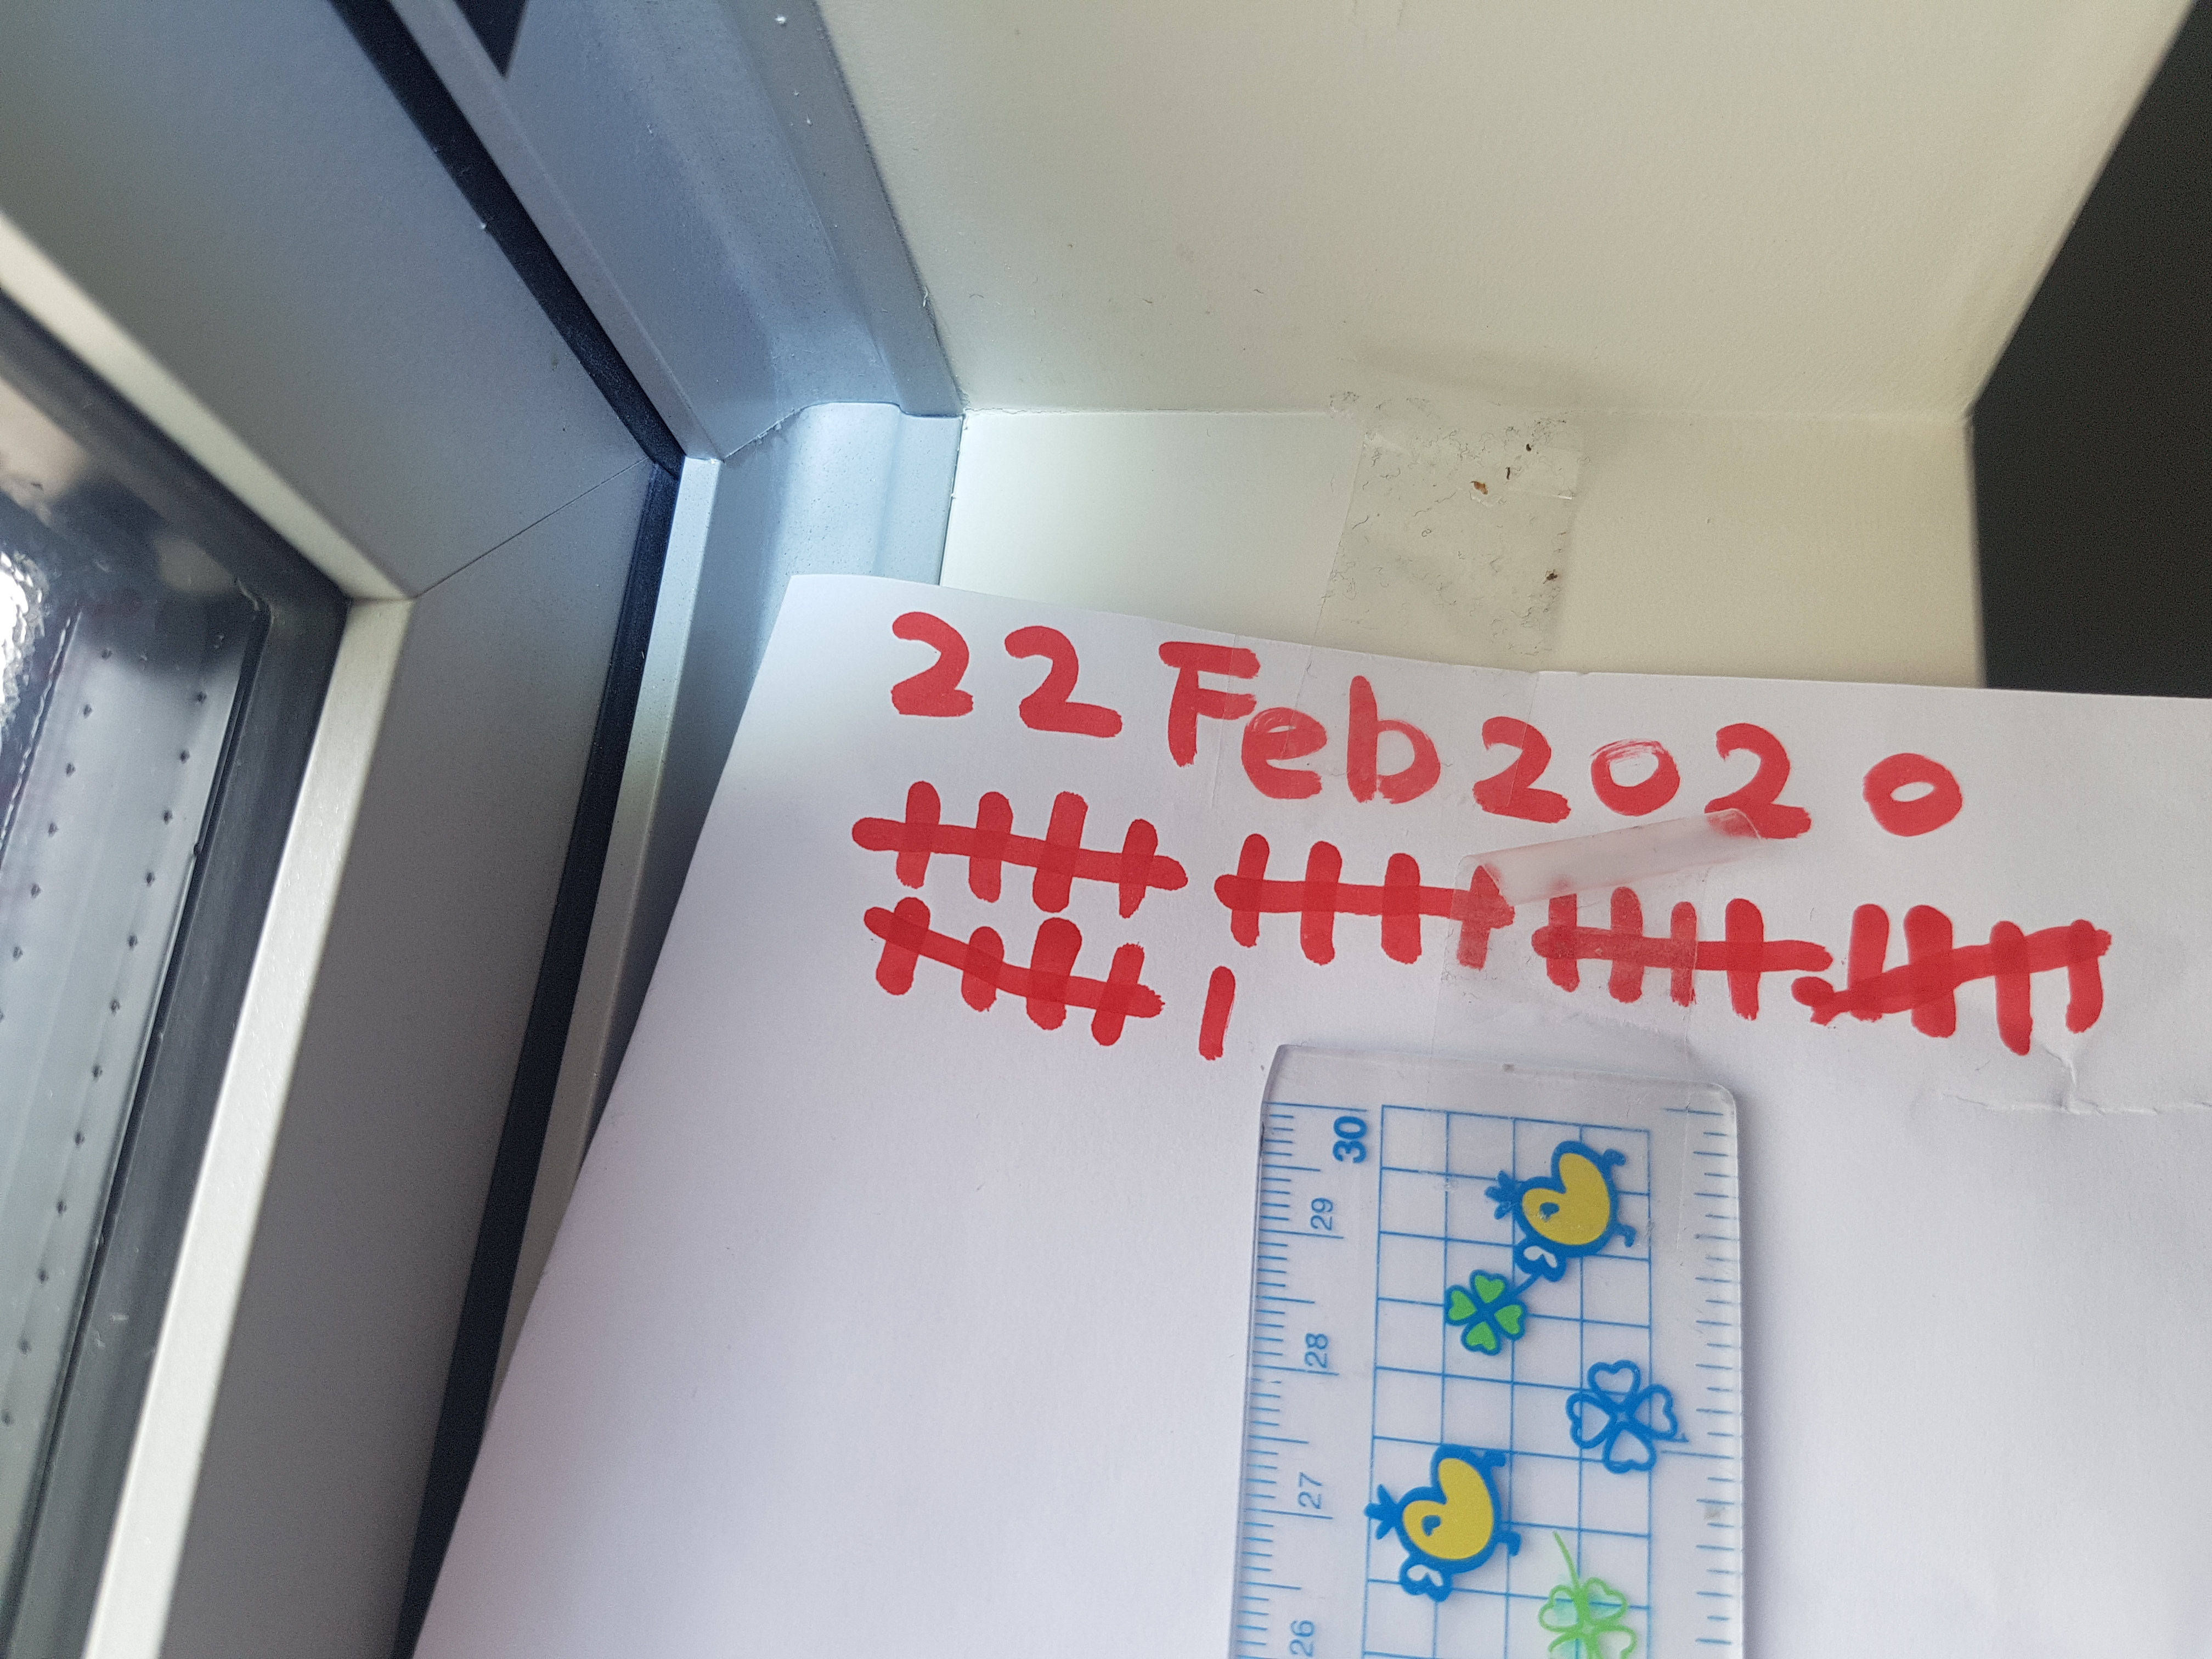 22 Feb 2020
30
29
28
27
26